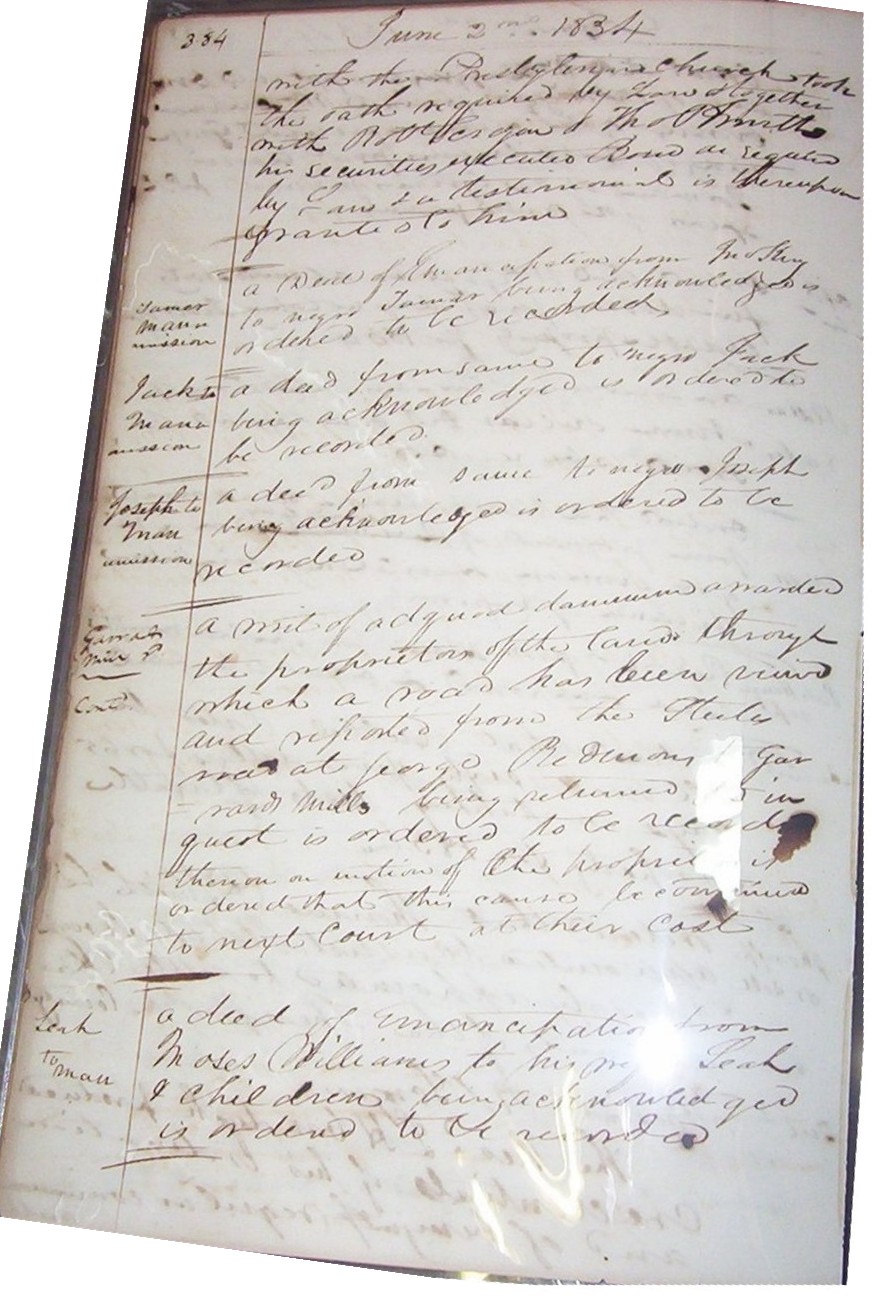 384
June 2nd 1834
with the Presbyterian Church took
the oath required by Law & together
with Robt & Tho P Smith
his securities executed Bond as required
by Law & a testimonial is thereupon
granted to him
Tamer
Manu
mission
a Deed of Emancipation from Jno King
to negro Tamar being acknowledged is
ordered to be recorded
Jack to
Manu
mission
a deed from same to negro Jack
being acknowledged is ordered to
be recorded
Joseph to
Man
umission
a deed from same to negro Joseph
being acknowledged is ordered to be
recorded
Garrard
Mill
Contd
a writ of adquod damnum awarded
the proprietors of the land through
which a road has been viewd
and reported from the Steels
road at George Redmons to Gar
rards Mills being returned in
quest is ordered to be recorded
thereon on motion of the it is
ordered that this cause be continued
to next Court at their Cost
Leah
to man
a deed of Emancipation from
Moses Williams to his Leah
& children being acknowledged
is ordered to be recorded